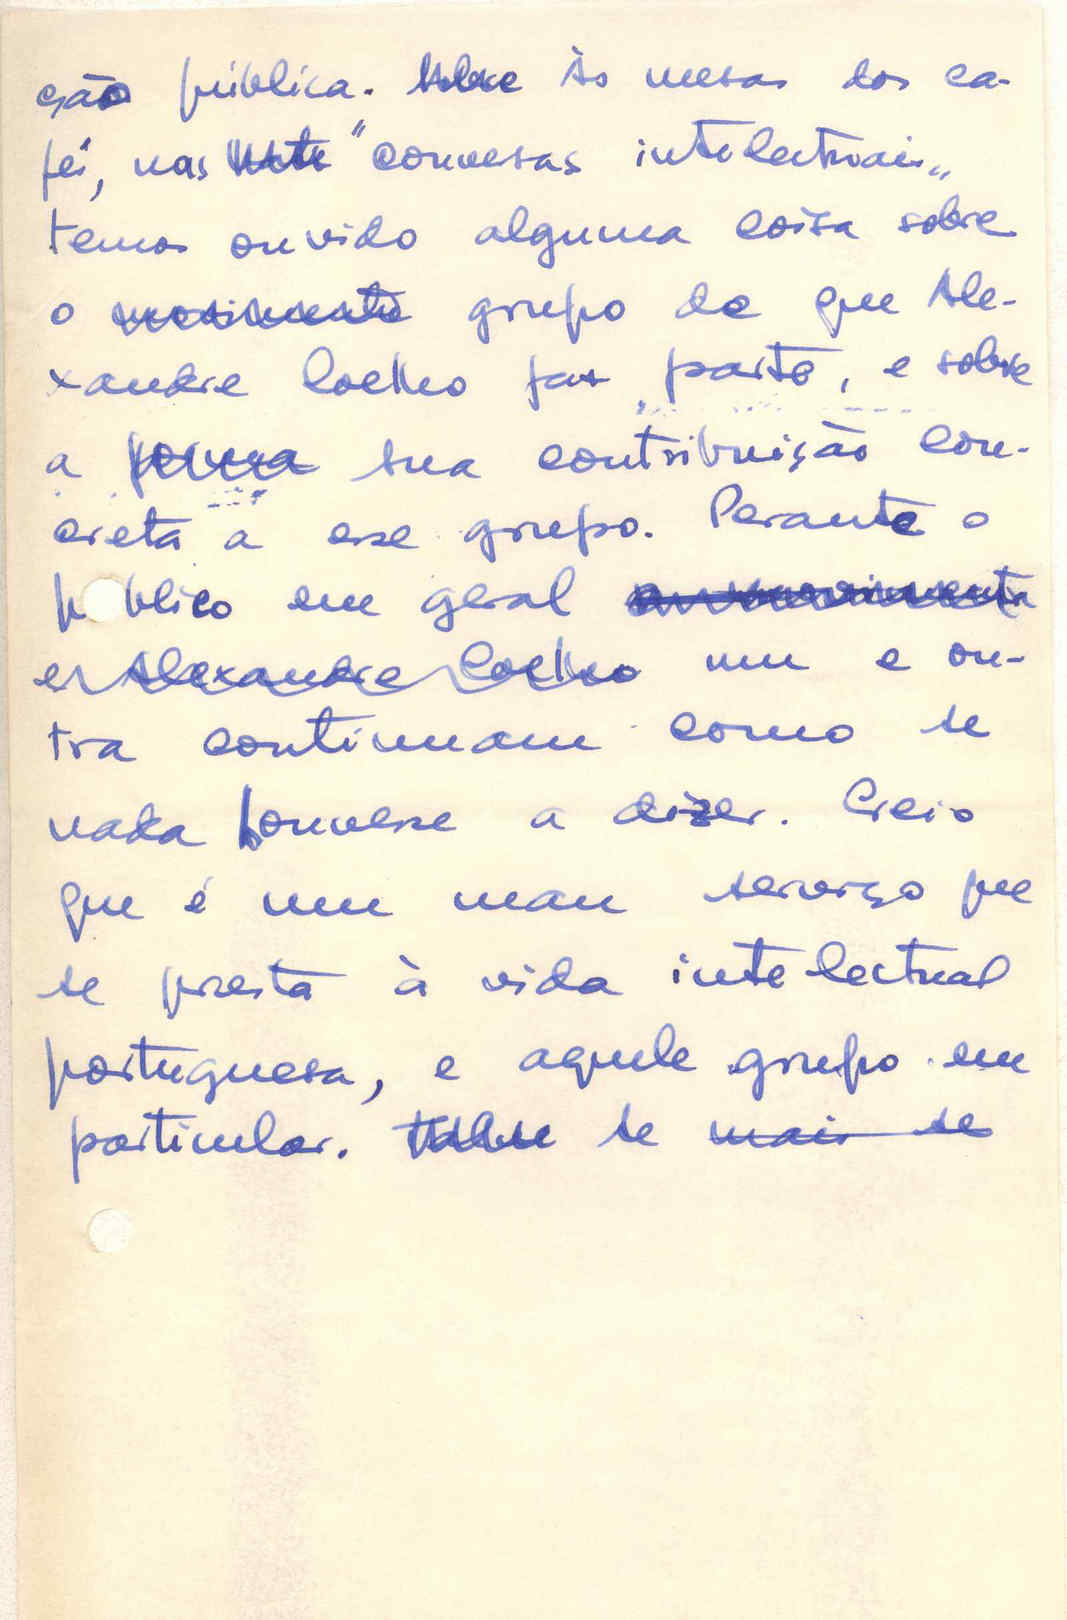 ção pública. Às mesas dos ca-
fés, nas "conversas intelectuais"
temos ouvido alguma coisa sobre
o movimento grupo de que Ale-
xandre Coelho faz parte, e sobre
a forma sua contribuição con-
creta a esse grupo. Perante o
público em geral
e Alexandre Coelho um e ou-
tra continuam como se
nada houvesse a dizer. Creio
que é um mau serviço que
se presta à vida intelectual
portuguesa, e aquele grupo em
particular. se mais se